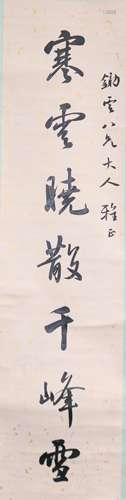 鋤雲八兄大人 雅正
寒雲曉散千峰雪